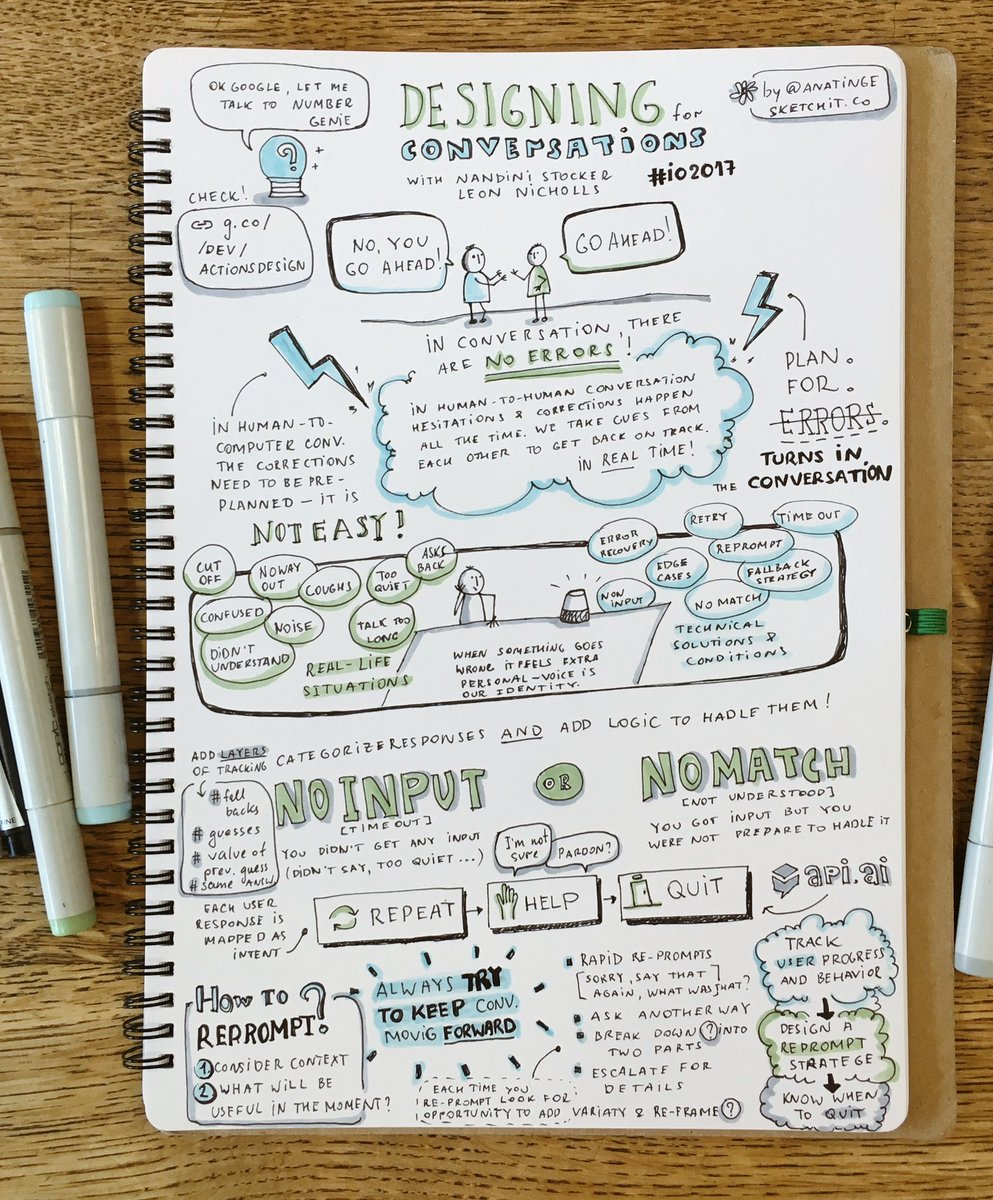 OK GOOGLE, LET ME
TALK TO NUMBER
GENIE
?
DESIGNING for
CONVERSATIONS
WITH NANDINI STOCKER
LEON NICHOLLS
#io2017
by @ANATINGE
SKETCHIT.CO
CHECK!
g.co/
/DEV/
ACTIONSDESIGN
NO, YOU
GO AHEAD!
GO AHEAD!
IN CONVERSATION, THERE
ARE NO ERRORS!
IN HUMAN-TO-HUMAN CONVERSATION
HESITATIONS & CORRECTIONS HAPPEN
ALL THE TIME. WE TAKE CUES FROM
EACH OTHER TO GET BACK ON TRACK.
IN REAL TIME!
IN HUMAN-TO-
COMPUTER CONV.
THE CORRECTIONS
NEED TO BE PRE-
PLANNED – IT IS
NOT EASY!
PLAN.
FOR.
ERRORS.
TURNS IN
THE CONVERSATION
CUT
OFF
NO WAY
OUT
COUGHS
TOO
QUIET
ASKS
BACK
CONFUSED
NOISE
TALK TOO
LONG
DIDN'T
UNDERSTAND
REAL-LIFE
SITUATIONS
WHEN SOMETHING GOES
WRONG IT FEELS EXTRA
PERSONAL – VOICE IS
OUR IDENTITY.
ERROR
RECOVERY
RETRY
TIME OUT
REPROMPT
EDGE
CASES
FALLBACK
STRATEGY
NON
INPUT
NO MATCH
TECHNICAL
SOLUTIONS &
CONDITIONS
CATEGORIZE RESPONSES AND ADD LOGIC TO HADLE THEM!
ADD LAYERS
OF TRACKING
# fell
backs
# guesses
# value of
prev. guess
# same ANSW.
NO INPUT
[TIME OUT]
YOU DIDN'T GET ANY INPUT
(DIDN'T SAY, TOO QUIET...)
OR
NO MATCH
[NOT UNDERSTOOD]
YOU GOT INPUT BUT YOU
WERE NOT PREPARE TO HADLE IT
I'm not
sure
PARDON?
EACH USER
RESPONSE IS
MAPPED AS
INTENT
REPEAT
HELP
QUIT
api.ai
HOW TO
REPROMPT?
1 CONSIDER CONTEXT
2 WHAT WILL BE
USEFUL IN THE MOMENT?
ALWAYS TRY
TO KEEP CONV.
MOVIG FORWARD
RAPID RE-PROMPTS
[SORRY, SAY THAT
AGAIN, WHAT WAS THAT?]
ASK ANOTHER WAY
BREAK DOWN ? INTO
TWO PARTS
ESCALATE FOR
DETAILS
EACH TIME YOU
RE-PROMPT LOOK FOR
OPPORTUNITY TO ADD VARIATY & RE-FRAME ?
TRACK
USER PROGRESS
AND BEHAVIOR
DESIGN A
REPROMPT
STRATEGE
KNOW WHEN
TO QUIT